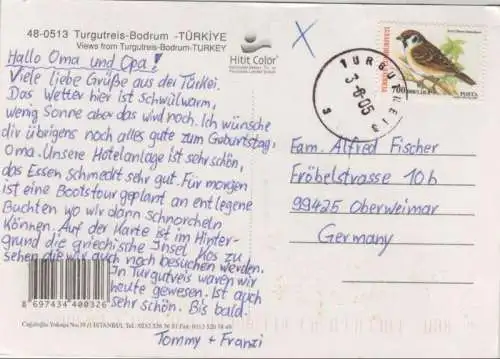 48-0513 Turgutreis-Bodrum -TÜRKİYE
Views from Turgutreis-Bodrum-TURKEY
Hitit Color
Hallo Oma und Opa!
Viele liebe Grüße aus der Türkei.
Das Wetter hier ist schwülwarm,
wenig Sonne aber das wird noch. Ich wünsche
dir übrigens noch alles gute zum Geburtstag,
Oma. Unsere Hotelanlage ist sehr schön,
das Essen schmeckt sehr gut. Für morgen
ist eine Bootstour geplant an entlegene
Buchten wo wir dann schnorcheln
können. Auf der Karte ist im Hinter-
grund die griechische Insel Kos zu
sehen die wir auch noch besuchen werden.
In Turgutreis waren wir
heute gewesen. Ist auch
sehr schön. Bis bald.
Tommy + Franzi
8 697434 400326
X
TURGUTREIS
3-6-05
700
Fam. Alfred Fischer
Fröbelstrasse 10b
99425 Oberweimar
Germany